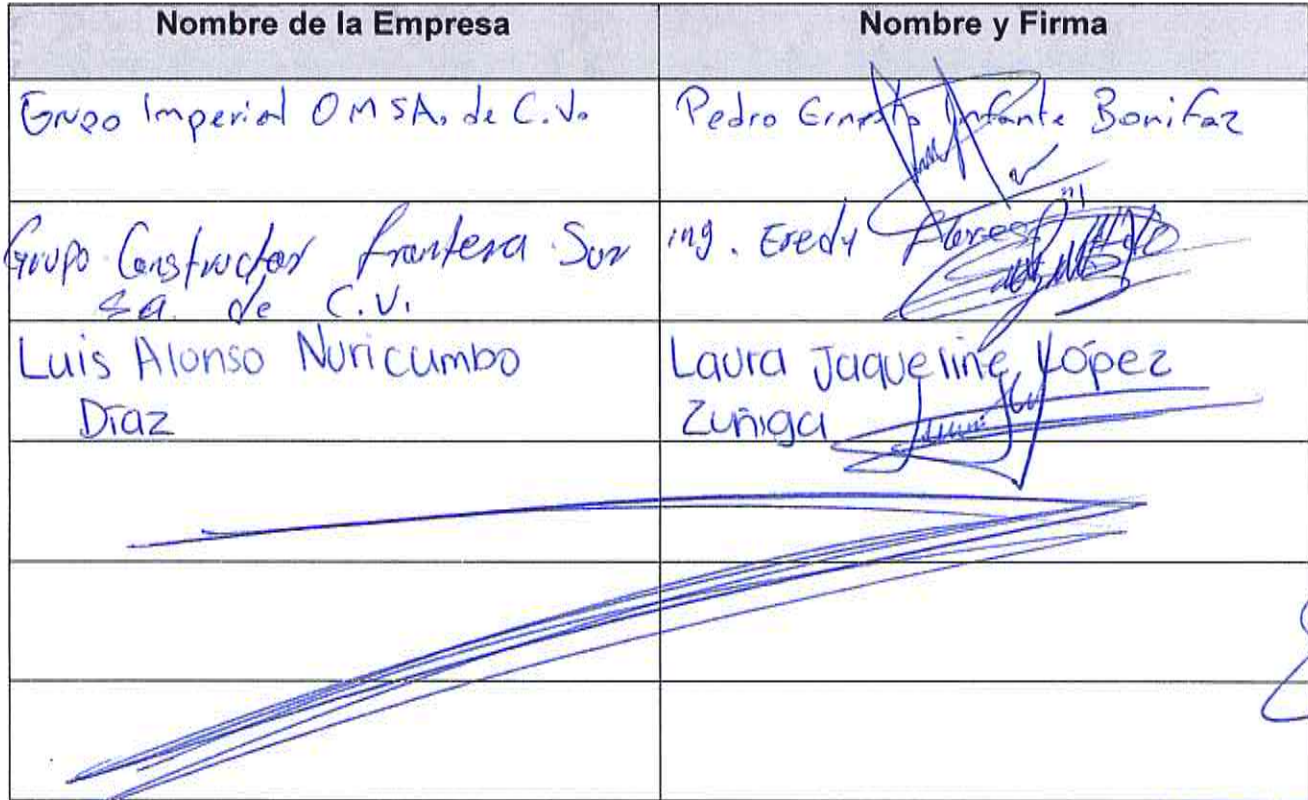 Nombre de la Empresa
Nombre y Firma
Grupo Imperial OM SA. de C.V.
Pedro Ernesto Infante Bonifaz
Grupo Constructor frontera Sur
S.a. de C.V.
ing. Eredy Flores
Luis Alonso Nuricumbo
Díaz
Laura Jaqueline López
Zuñiga